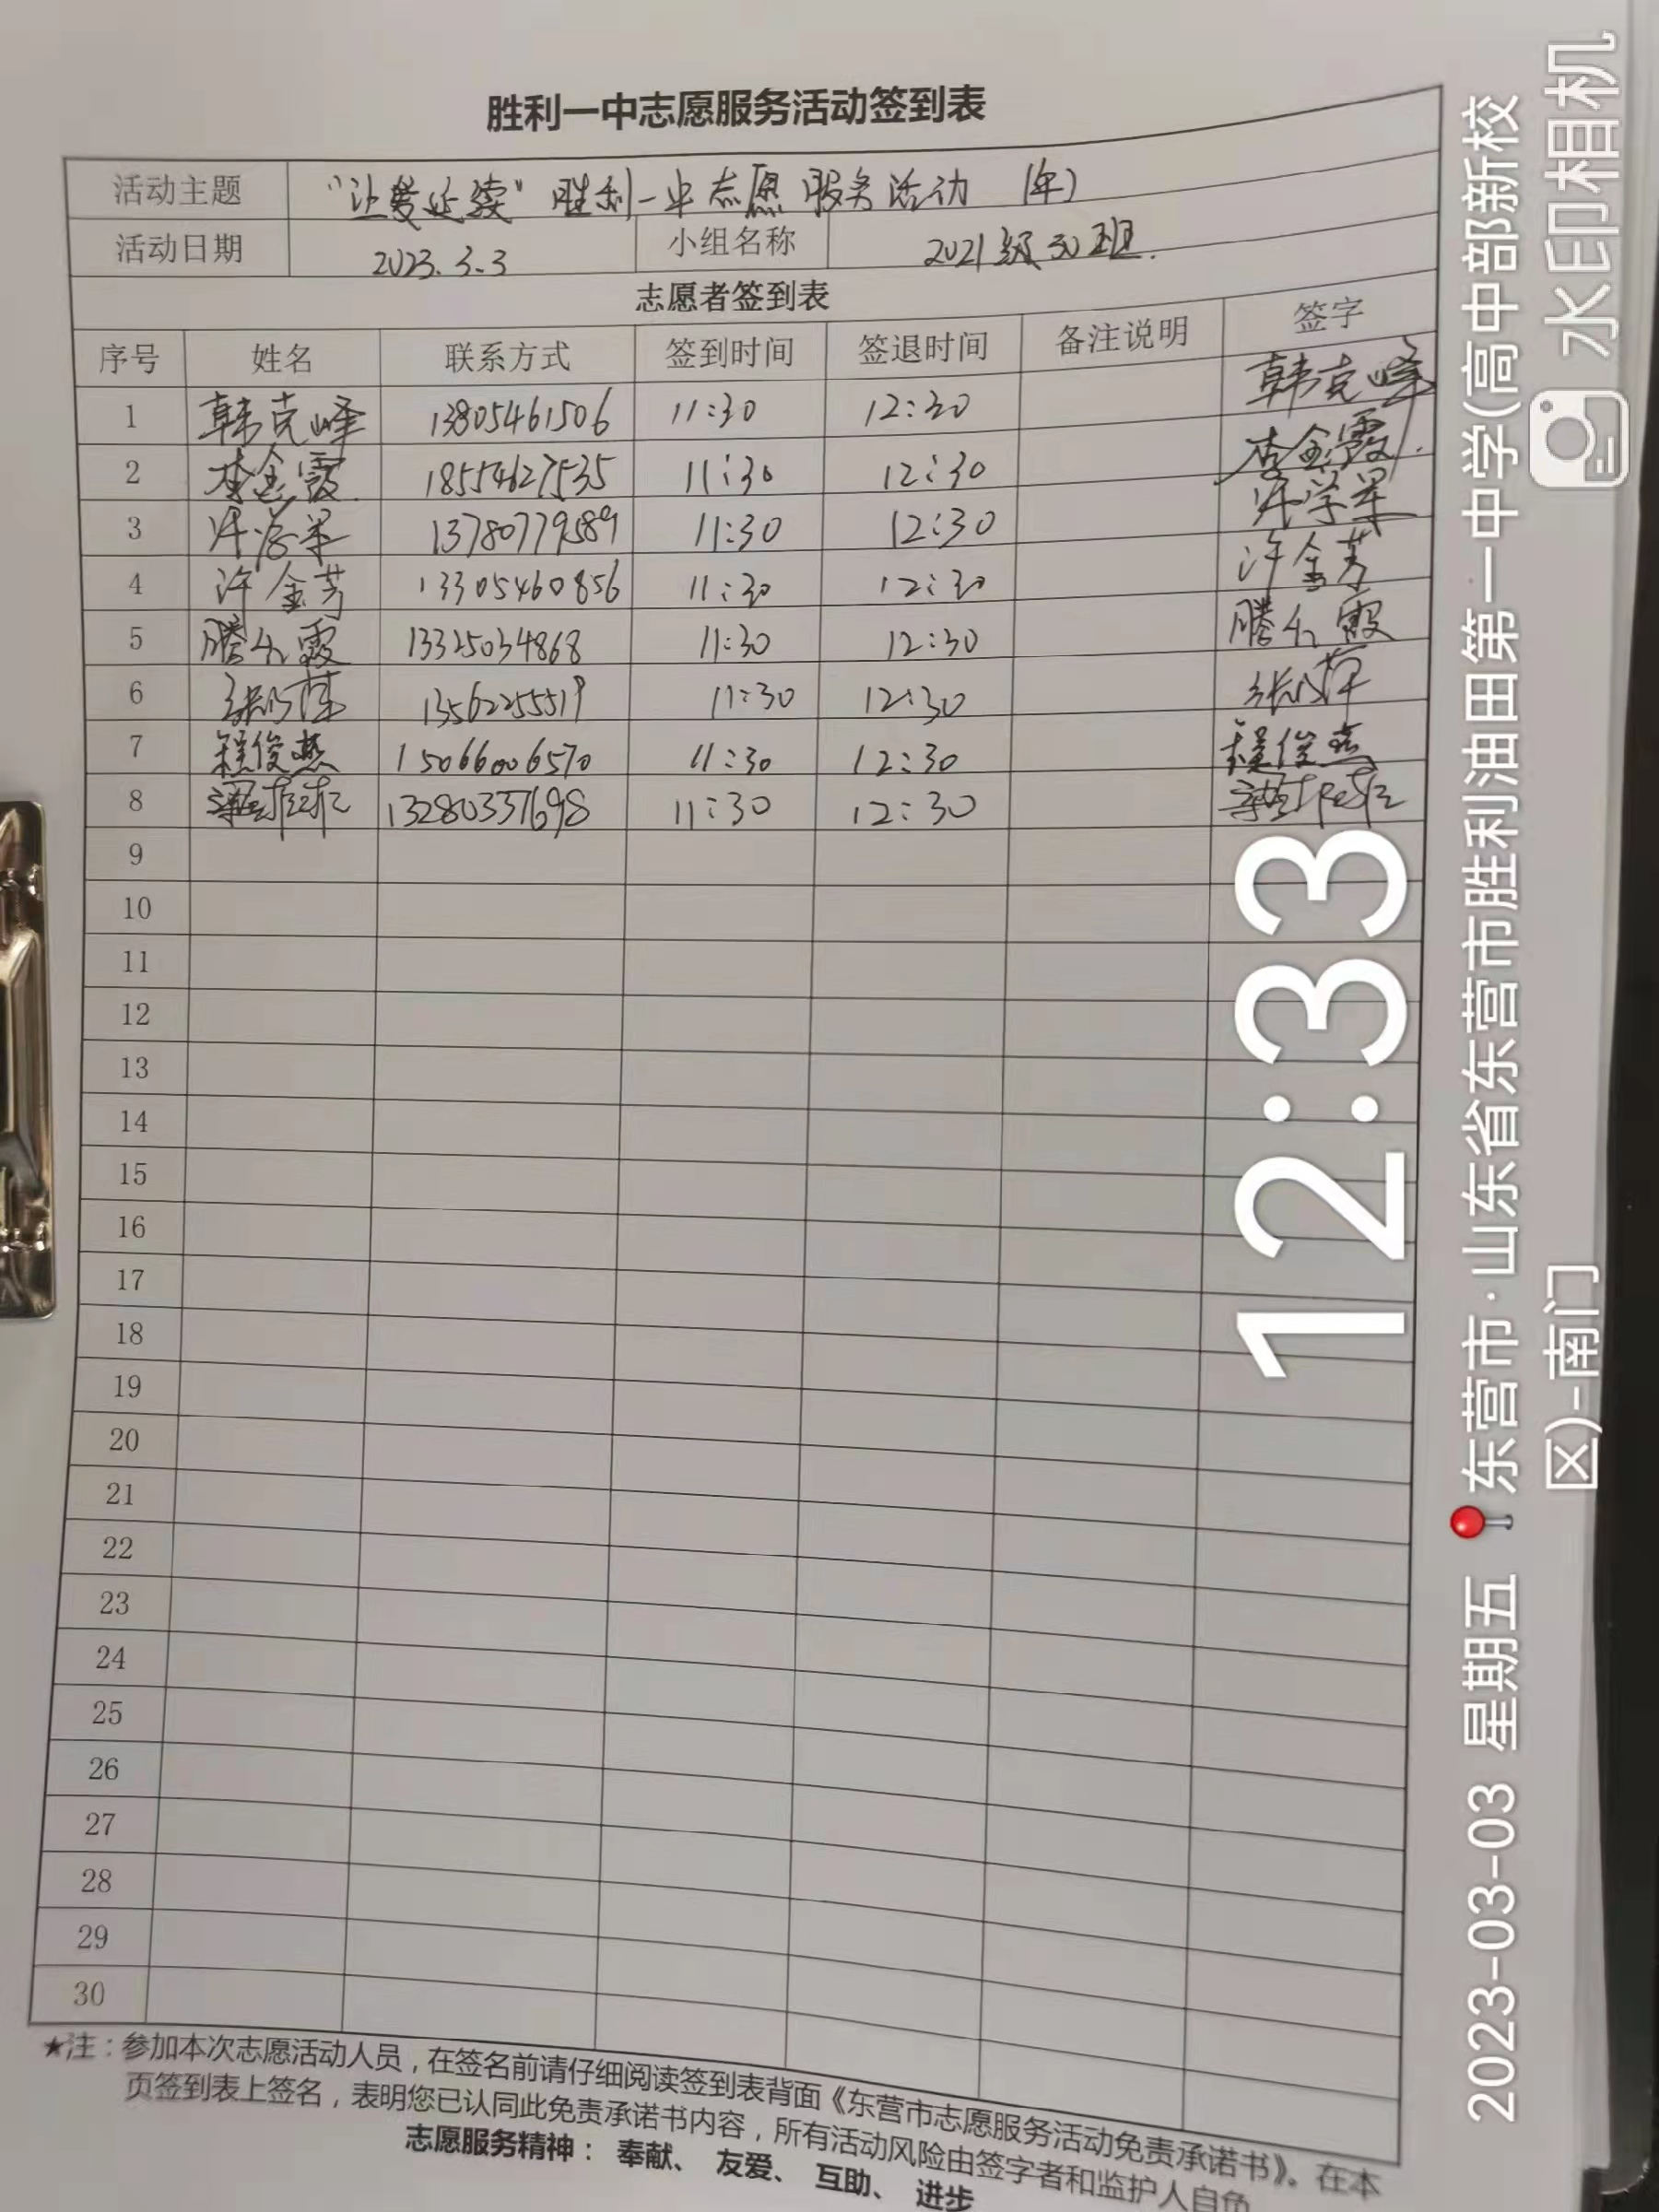 胜利一中志愿服务活动签到表
活动主题 "让爱延续"胜利一中志愿服务活动 (午)
活动日期 2023.3.3 小组名称 2021级30班.
志愿者签到表
序号 姓名 联系方式 签到时间 签退时间 备注说明 签字
1 韩克峰 13805461506 11:30 12:30 韩克峰
2 李金霞 18554627535 11:30 12:30 李金霞
3 许学军 13780779589 11:30 12:30 许学军
4 许金芳 13305460856 11:30 12:30 许金芳
5 腾红霞 13325034868 11:30 12:30 腾红霞
6 13562255519 11:30 12:30
7 程俊燕 15066006570 11:30 12:30 程俊燕
8 11:30 12:30
9
10
11
12
13
14
15
16
17
18
19
20
21
22
23
24
25
26
27
28
29
30
★注：参加本次志愿活动人员，在签名前请仔细阅读签到表背面《东营市志愿服务活动免责承诺书》。在本
页签到表上签名，表明您已认同此免责承诺书内容，所有活动风险由签字者和监护人自负
志愿服务精神： 奉献、 友爱、 互助、 进步
12:33
2023-03-03 星期五 东营市·山东省东营市胜利油田第一中学(高中部新校
区)-南门
水印相机